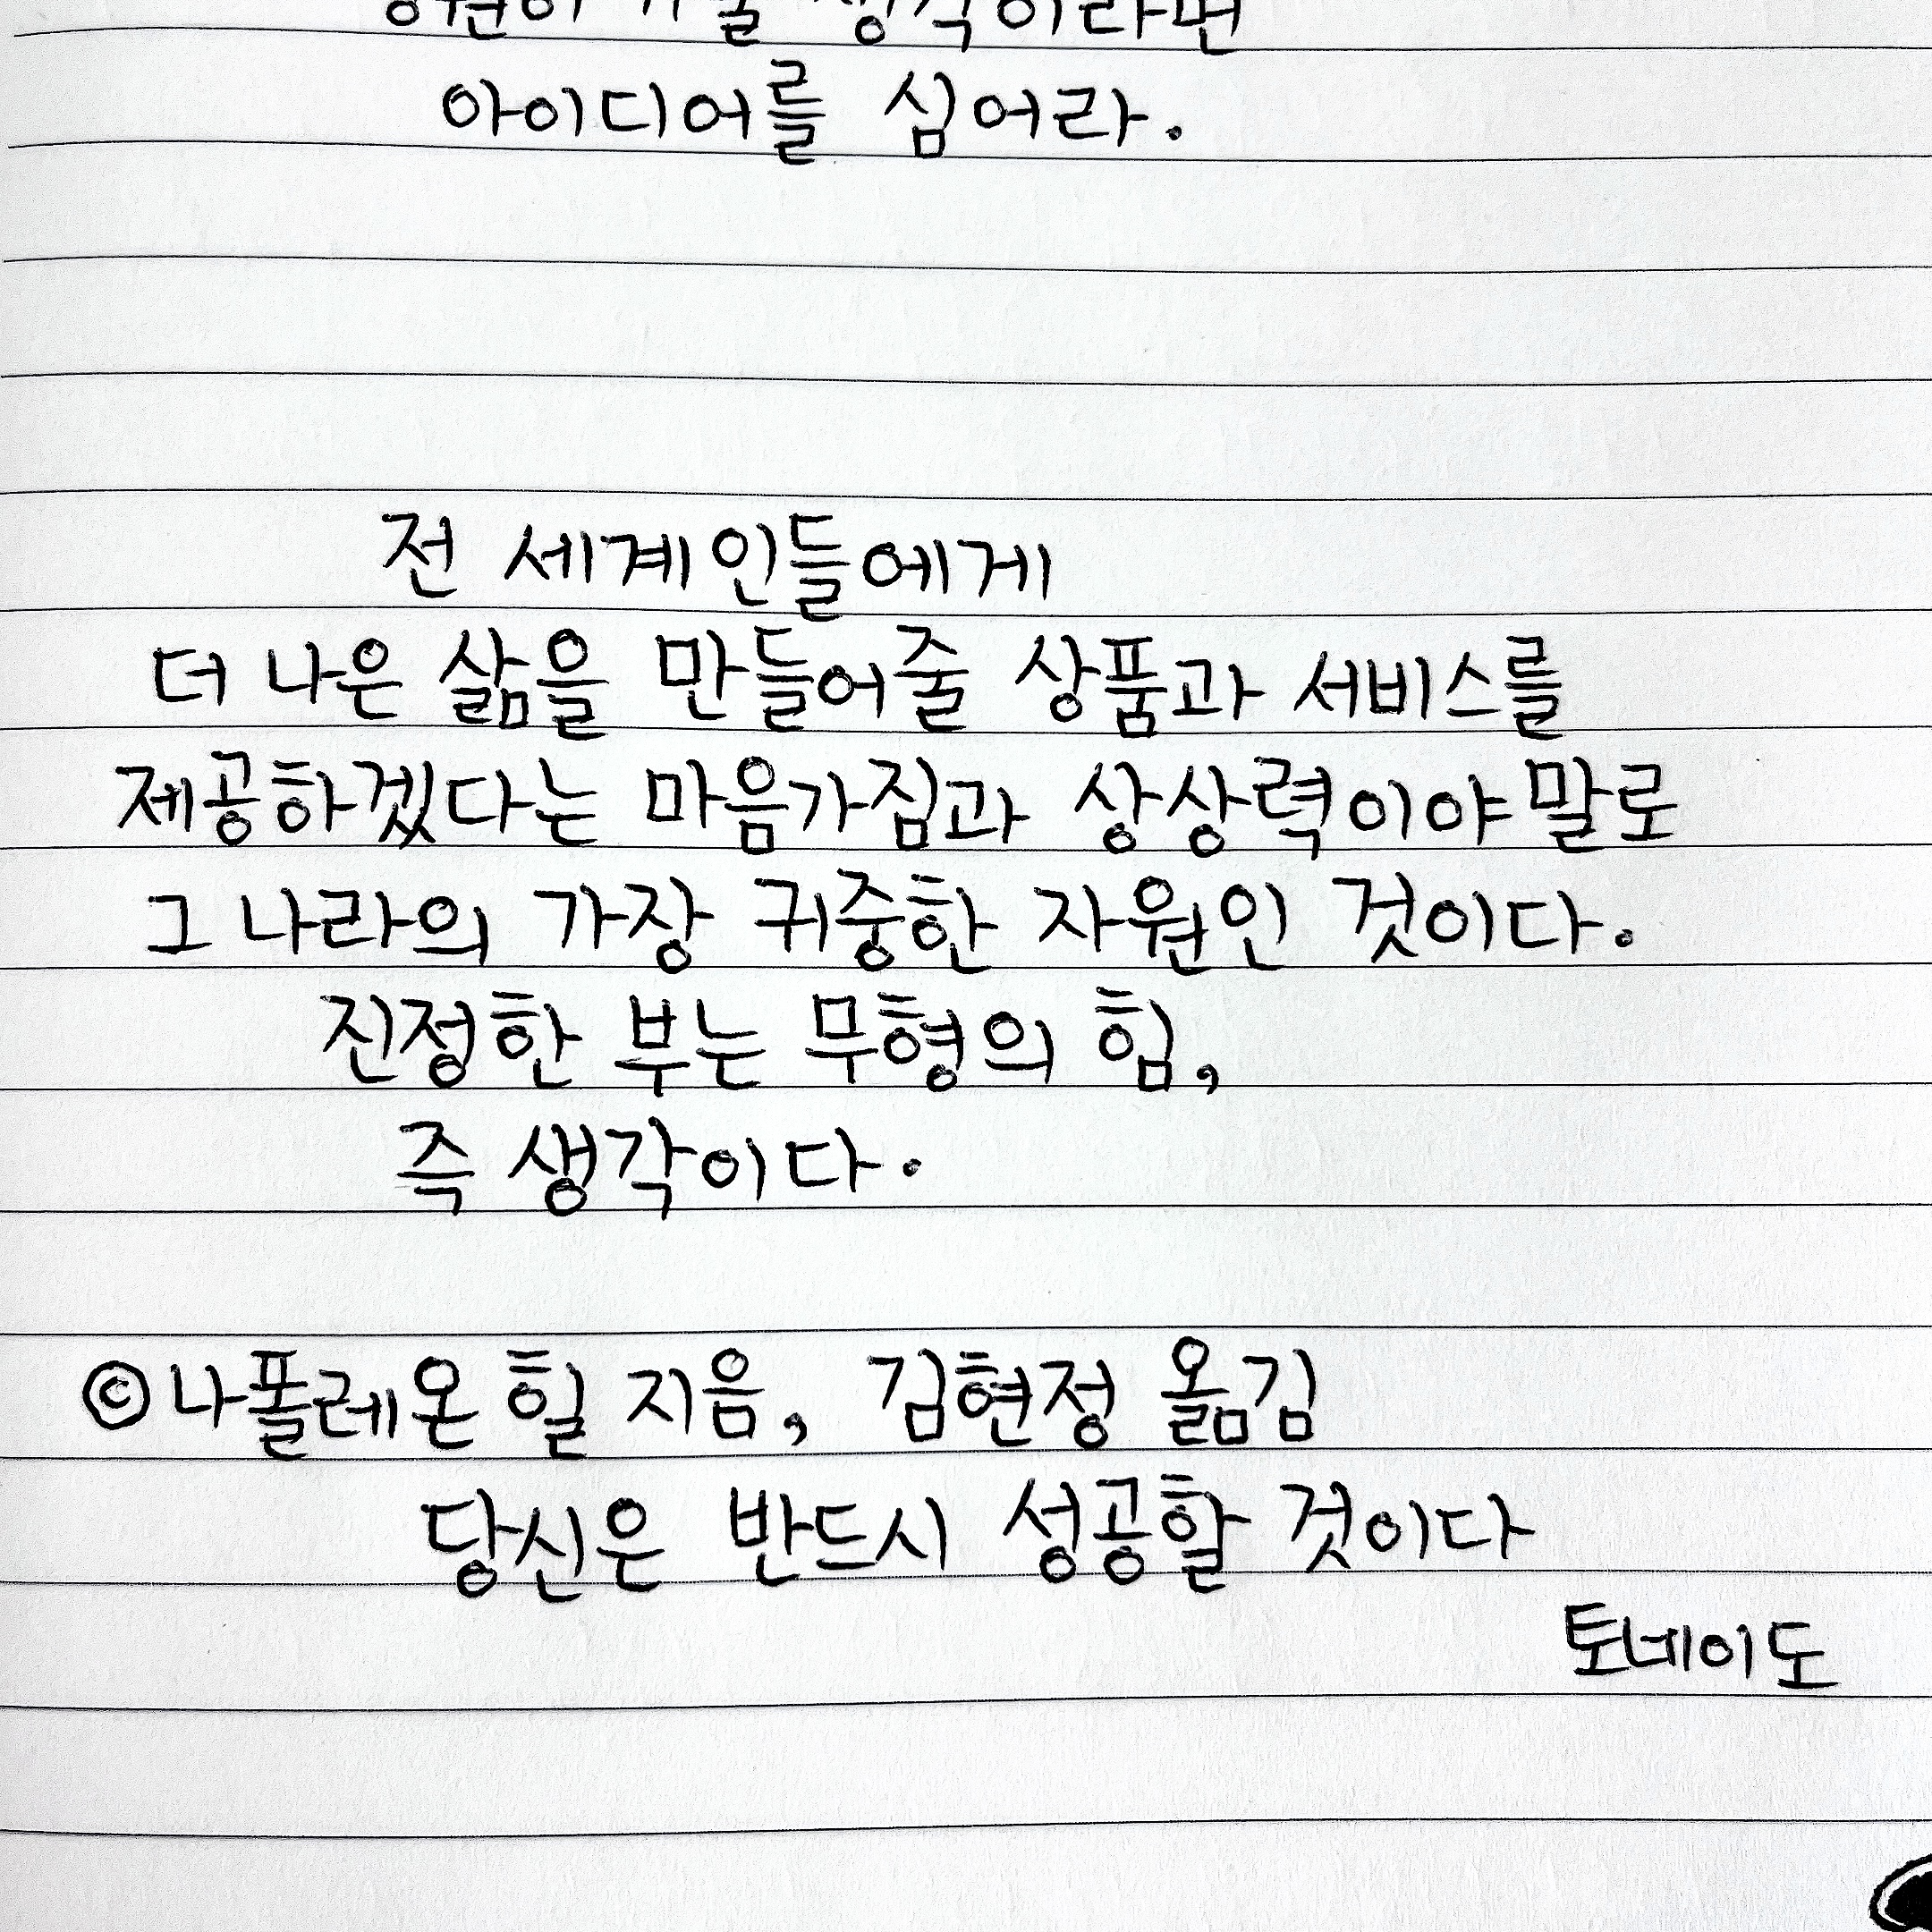 생각이라면
아이디어를 심어라.
전 세계인들에게
더 나은 삶을 만들어줄 상품과 서비스를
제공하겠다는 마음가짐과 상상력이야말로
그 나라의 가장 귀중한 자원인 것이다.
진정한 부는 무형의 힘,
즉 생각이다.
© 나폴레온 힐 지음, 김현정 옮김
당신은 반드시 성공할 것이다
토네이도